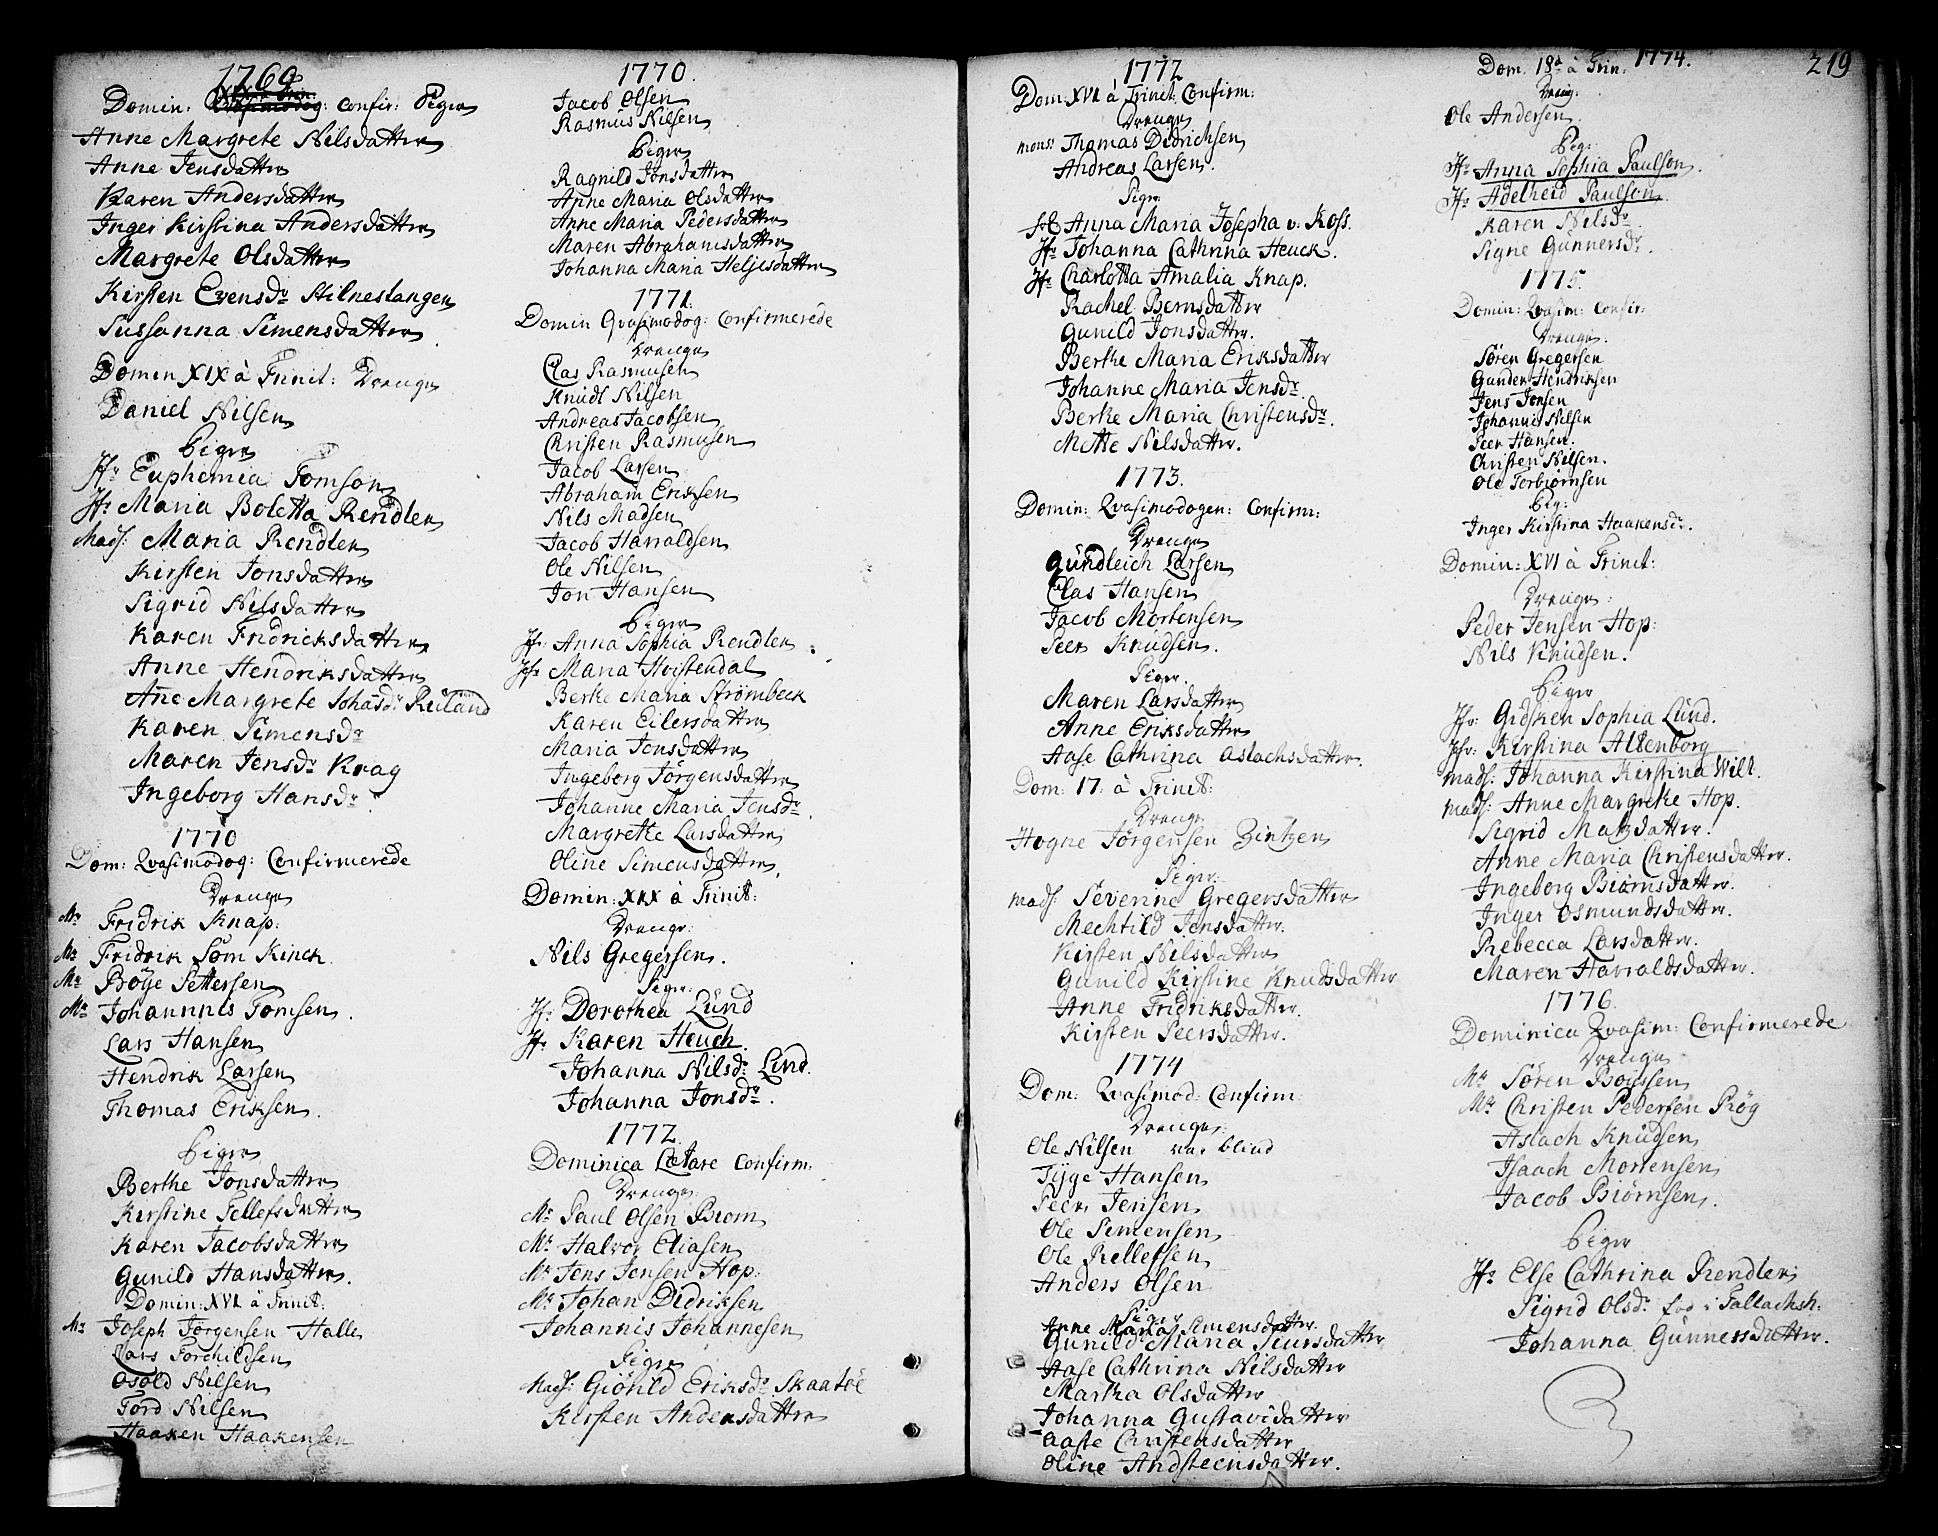 1769
Domin: confir: Piger
Anne Margrete Nilsdatter
Anne Jensdatter
Karen Andersdatter
Inger Kirstina Andersdatter
Margrete Olsdatter
Kirsten Evensdr Stilnestangen
Sussanna Simensdatter
Domin XIX à Trinit: Drenge
Daniel Nilsen
Piger
Jfr Euphemia Tomson
Jfr Maria Boletta Rendler
Mads: Maria Rendler
Kirsten Jonsdatter
Sigrid Nilsdatter
Karen Fridricksdatter
Anne Hendriksdatter
Añe Margrete Johasdr Reiland
Karen Simensdr
Maren Jensdr Krag
Ingeborg Hansdr
1770
Dom: Qvasimodog: Confirmerede
Drenge
Mr Fridrik Knap:
Mr Fridrik Som Kinck
Mr Böye Pettersen
Mr Johannes Tomsen.
Lars Hansen
Hendrik Larsen
Thomas Eriksen.
Piger
Berthe Jonsdatter
Kirstine Tellefsdatter
Karen Jacobsdatter
Gunild Hansdatter.
Domin: XVI à Trinit:
Mr Joseph Jørgensen Halle
Lars Torchildsen
Osold Nilsen
Tord Nilsen
Haaken Haakensen
1770.
Jacob Olsen
Rasmus Nilsen
Piger
Ragnild Jonsdatter
Anne Maria Olsdatter
Anne Maria Pedersdatter
Maren Abrahamsdatter
Johanna Maria Heljesdatter
1771.
Domin Qvasimodog: Confirmerede
Drenge
Clas Rasmusen
Knudt Nilsen
Andreas Jacobsen
Christen Rasmusen
Jacob Larsen
Abraham Eriksen
Nils Madsen
Jacob Harraldsen
Ole Nilsen
Jon Hansen
Piger
Jfr: Anna Sophia Rendler
Jfr Maria Hvistendal
Berte Maria Strömbeck
Karen Eilersdatter
Maria Jensdatter
Ingeborg Jörgensdatter
Johanne Maria Jensdr
Margrethe Larsdatter
Oline Simensdatter
Domin: XIX à Trinit:
Drenge:
Nils Gregersen.
Piger:
Jfr Dorothea Lund
Jfr Karen Heuch.
Johanna Nilsdr Lind.
Johanna Jonsdr.
1772.
Dominica Lætare Confirm:
Drenge
Mr Paul Olsen Biorn
Mr Halvor Eliasen
Mr Jens Jensen Hop:
Mr Johan Didriksen
Johannis Johannesen
Piger
Mads: Giörild Eriksdr Skaatöe
Kirsten Andersdatter
1772
Dom: XVI à Trinit: Confirm:
Drenge
Monsr Thomas Didrichsen
Andreas Larsen.
Piger
Anna Maria Josepha v: Koss.
Jfr Johanna Cathrina Heuck.
Jfr Charlotta Amalia Knap.
Rachel Bernsdatter
Gunild Jonsdatter.
Berthe Maria Eriksdatter
Johanne Maria Jensdr.
Berthe Maria Christensdr.
Mette Nilsdatter.
1773.
Domin: Qvasimodogen: Confirm:
Drenge
Gundleich Larsen
Clas Hansen
Jacob Mortensen
Peer Knudsen.
Piger.
Maren Larsdatter
Anne Eriksdatter
Aase Cathrina Aslachsdatter.
Dom: 17: à Trinit:
Drenge
Hogne Jörgensen Zintzen
Piger:
mads: Severine Gregersdatter
Mechtild Jensdatter.
Kirsten Nilsdatter
Gunild Kirstine Knudsdatter
Anne Fridriksdatter.
Kirsten Peersdatter.
1774
Dom: Qvasimod: Confirm:
Drenge:
Ole Nilsen var blind
Tÿge Hansen
Peer Jensen
Ole Simensen
Ole Rellefsen
Anders Olsen
Piger
Anne Maria Simensdatter.
Gunild Maria Siursdatter
Aase Cathrina Nilsdatter
Martha Olsdatter
Johanna Gustavidatter
Aaste Christensdatter
Oline Andsteensdatter.
219
1774.
Dom. 18de à Trin.
Dreng:
Ole Andersen.
Pig:
Jfr Anna Sophia Paulson.
Jfr Adelheid Paulson.
Karen Nilsdr
Signe Gunnersdr.
1775.
Domin: Qvasim: Confir:
Drenge:
Sören Gregersen
Gunder Hendriksen
Jens Jonsen
Johannes Nilsen
Peer Hansen.
Christen Nilsen.
Ole Torbiörnsen
Pig:
Inger Kirstina Haakensdr.
Domin: XVI à Trinit:
Drenge:
Peder Jensen Hop:
Nils Knudsen.
Piger
Jfr: Gidsken Sophia Lund.
Jfr: Kirstina Altenborg
mads: Johanna Kirstina Will.
mads: Anne Margrethe Hop.
Sigrid Matzdatter.
Anne Maria Christensdatter.
Ingeborg Biörnsdatter.
Inger Osmundsdatter.
Rebecca Larsdatter.
Maren Harraldsdatter.
1776.
Dominica Qvasim: Confirmerede
Drenge
Mr Sören Boissen
Mr Christen Pedersen Rög
Aslach Knudsen
Isaach Mortensen
Jacob Biörnsen.
Piger
Jfr Else Cathrina Rendler
Sigrid Olsdr fød i Tallachsh:
Johanna Gunnersdatter.